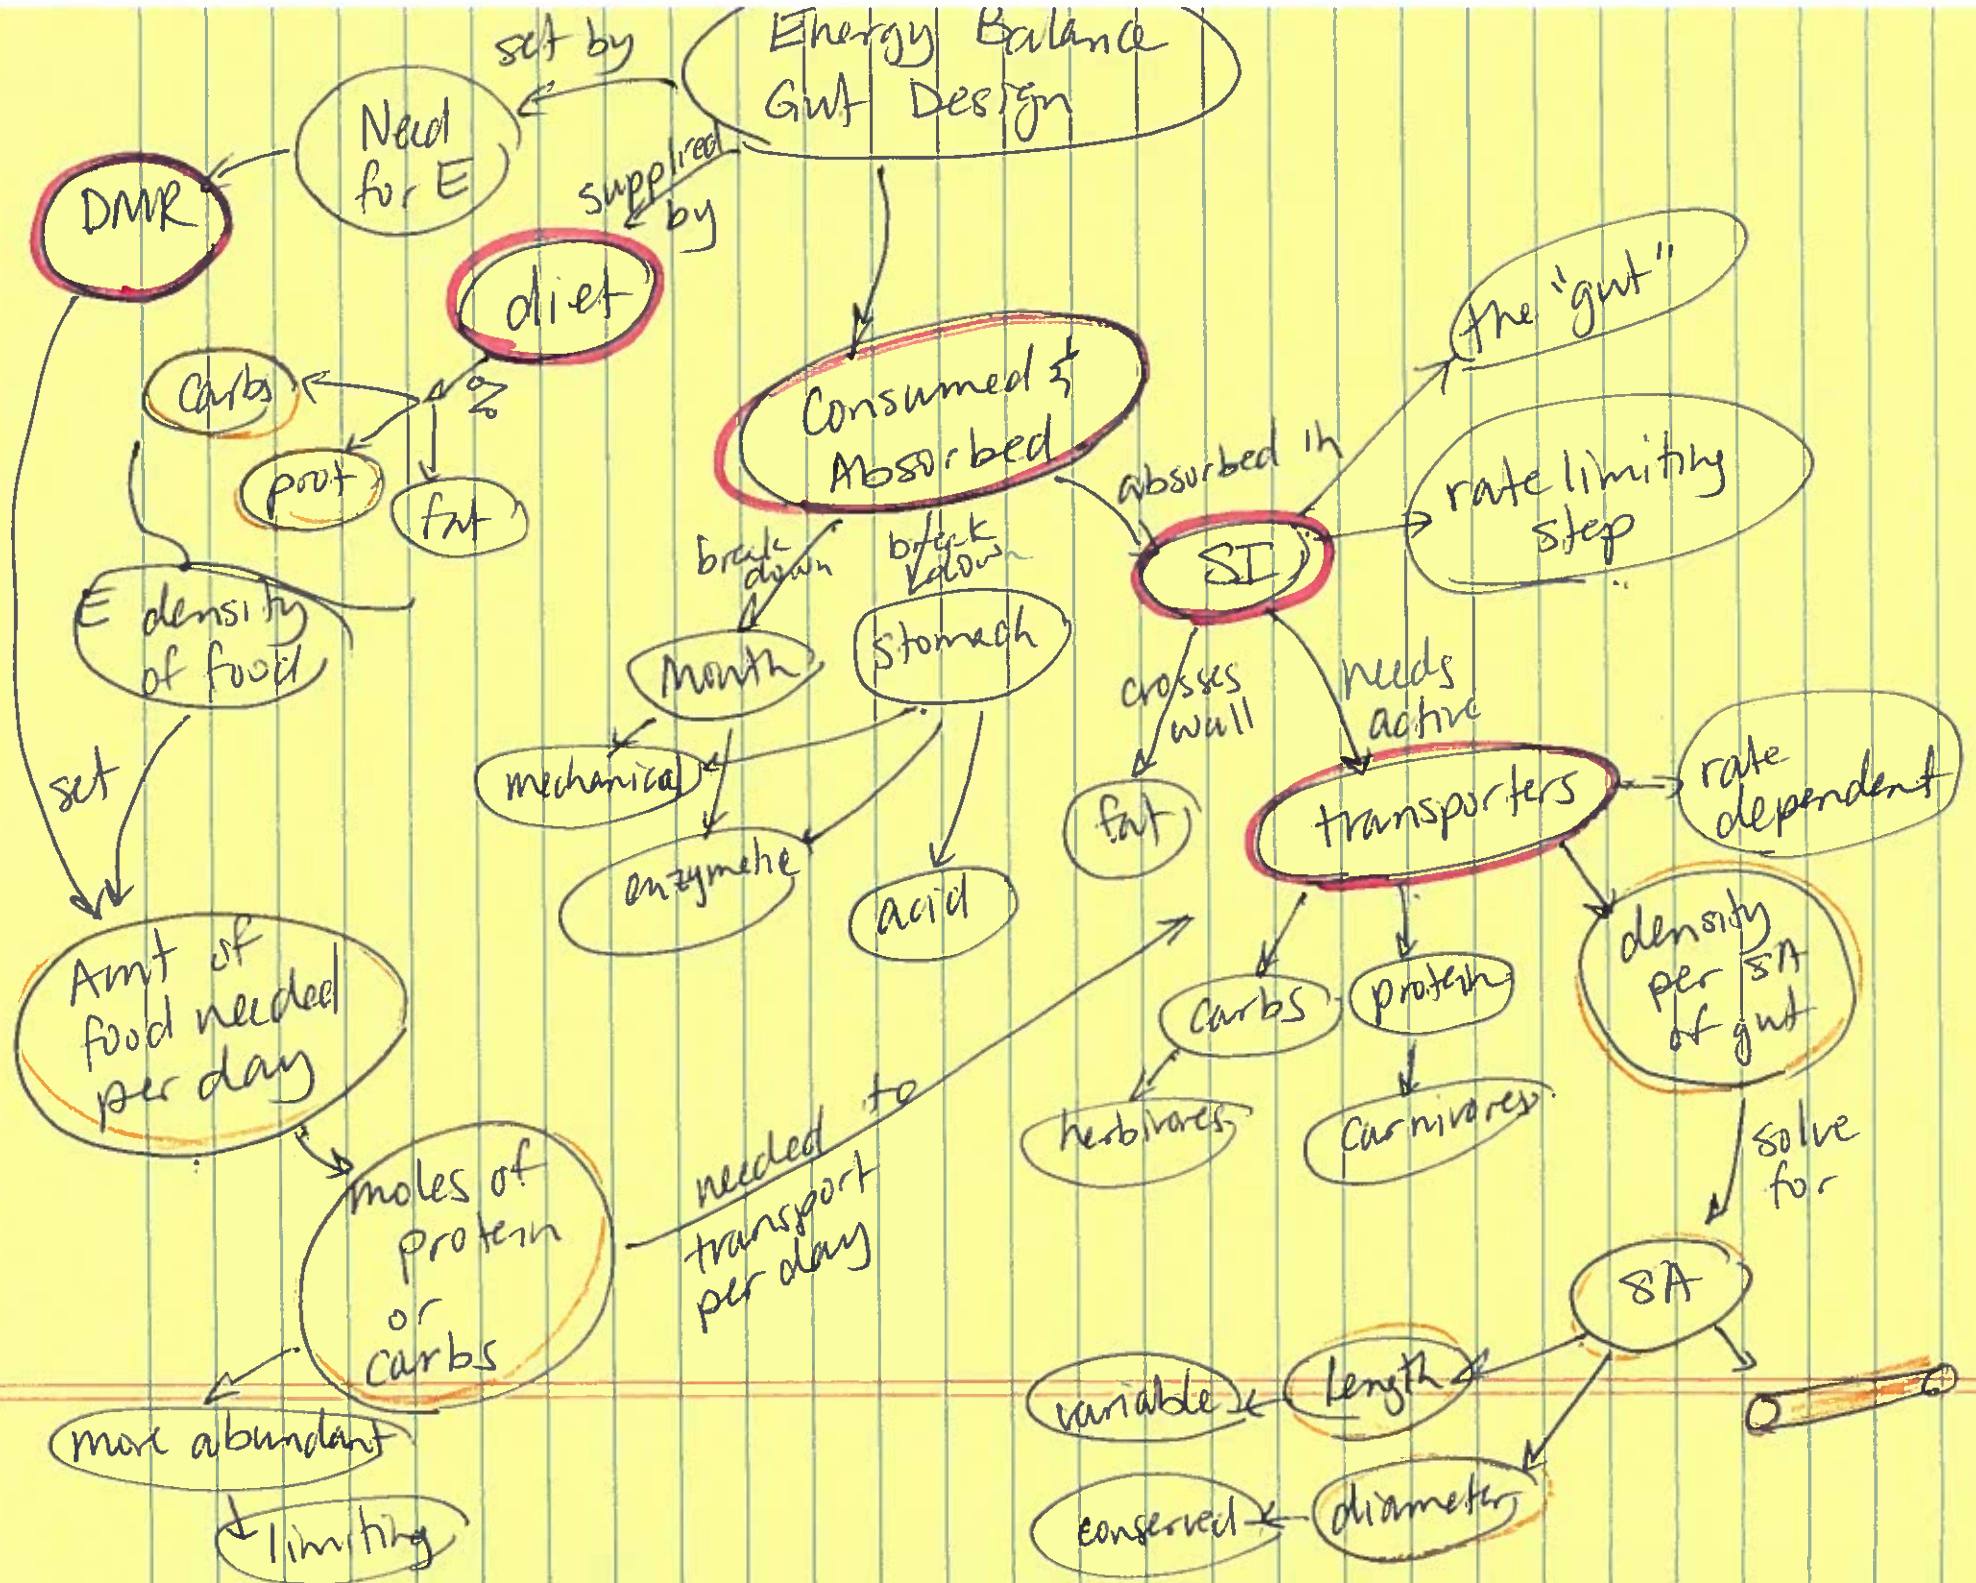 Energy Balance
Gut Design
set by
Need
for E
DMR
supplied
by
diet
%
carbs
prot
fat
E density
of food
set
Amt of
food needed
per day
moles of
protein
or
carbs
more abundant
limiting
needed to
transport
per day
Consumed &
Absorbed
break
down
break
down
Mouth
Stomach
mechanical
enzymatic
acid
absorbed in
SI
the "gut"
rate limiting
step
crosses
wall
fat
needs
active
transporters
rate
dependent
carbs
protein
herbivores
carnivores
density
per SA
of gut
solve
for
SA
Length
variable
diameter
conserved